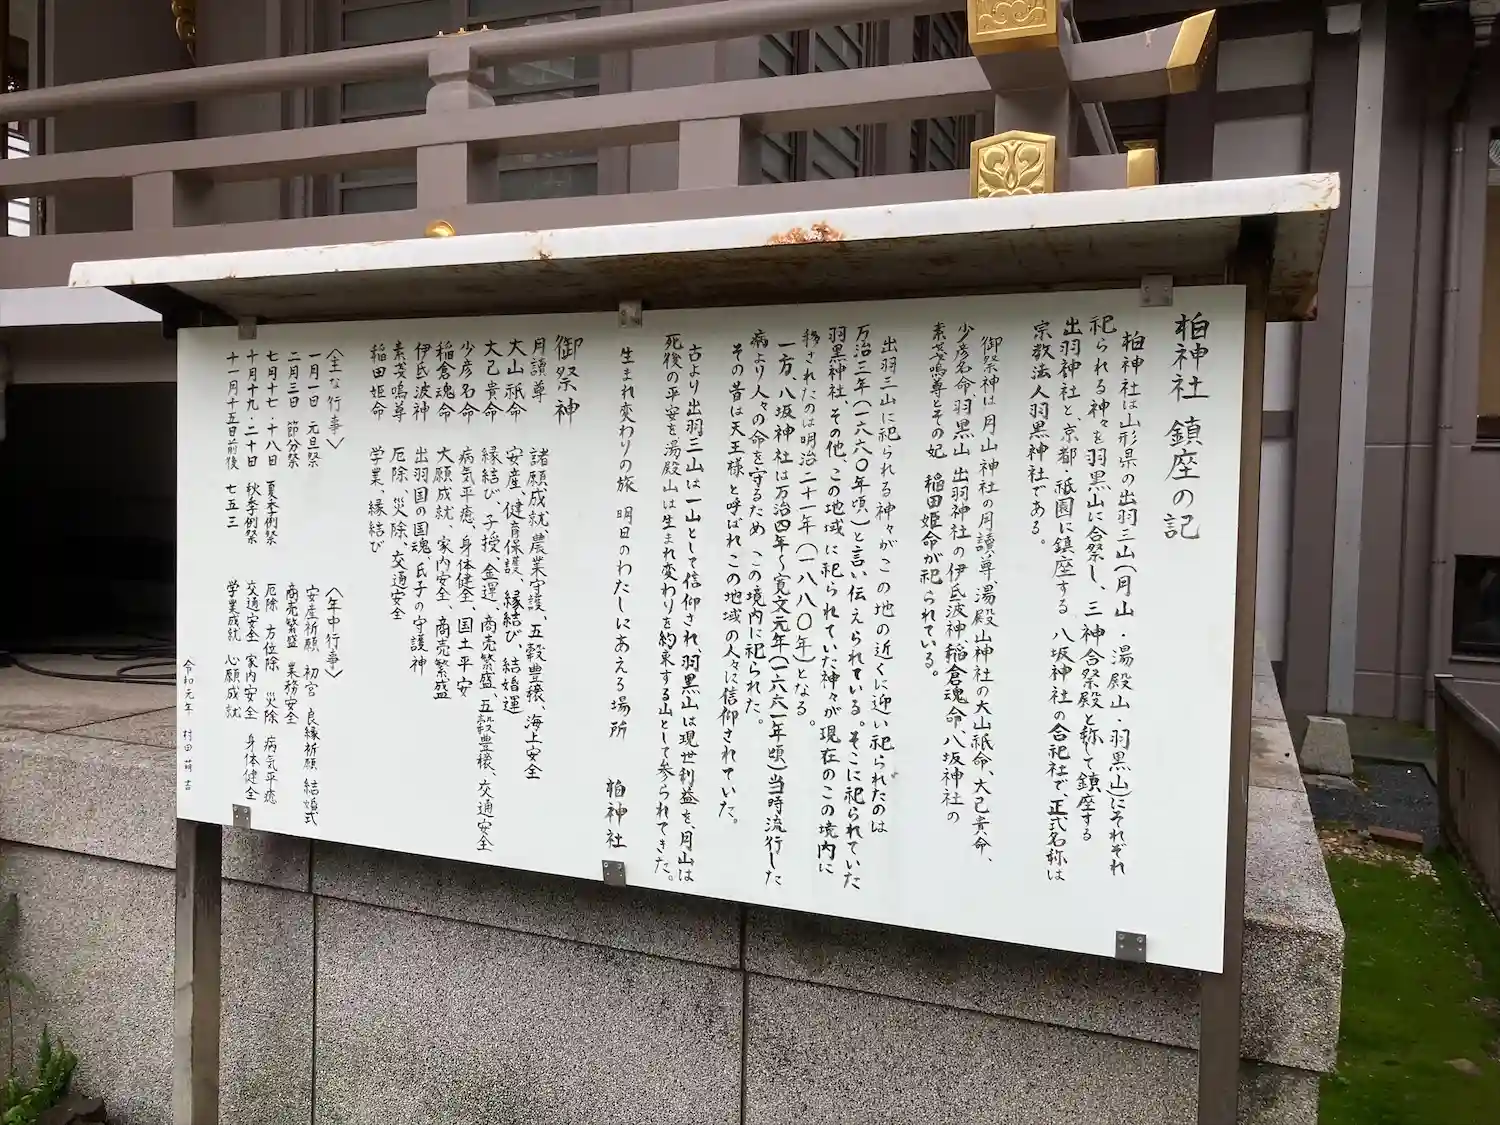 柏神社 鎮座の記
柏神社は山形県の出羽三山(月山・湯殿山・羽黒山)にそれぞれ
祀られる神々を羽黒山に合祭し、三神合祭殿と称して鎮座する
出羽神社と、京都・祇園に鎮座する八坂神社の合祀社で、正式名称は
宗教法人羽黒神社である。
御祭神は月山神社の月讀尊、湯殿山神社の大山祇命、大己貴命、
少彦名命、羽黒山 出羽神社の伊氐波神、稲倉魂命、八坂神社の
素戔嗚尊とその妃 稲田姫命が祀られている。
出羽三山に祀られる神々がこの地の近くに迎い祀られたのは
万治三年(一六六〇年頃)と言い伝えられている。そこに祀られていた
羽黒神社、その他、この地域に祀られていた神々が現在のこの境内に
移されたのは明治二十一年(一八八〇年)となる。
一方、八坂神社は万治四年〜寛文元年(一六六一年頃)当時流行した
病より人々の命を守るため この境内に祀られた。
その昔は天王様と呼ばれこの地域の人々に信仰されていた。
古より出羽三山は一山として信仰され、羽黒山は現世利益を、月山は
死後の平安を湯殿山は生まれ変わりを約束する山として参られてきた。
生まれ変わりの旅 明日のわたしにあえる場所 柏神社
御祭神
月讀尊 諸願成就、農業守護、五穀豊穣、海上安全
大山祇命 安産、健育保護、縁結び、結婚運
大己貴命 縁結び、子授、金運、商売繁盛、五穀豊穣、交通安全
少彦名命 病気平癒、身体健全、国土平安
稲倉魂命 大願成就、家内安全、商売繁盛
伊氐波神 出羽国の国魂、氏子の守護神
素戔嗚尊 厄除、災除、交通安全
稲田姫命 学業、縁結び
〈主な行事〉
一月一日 元旦祭
二月三日 節分祭
七月十七・十八日 夏季例祭
十月十九・二十日 秋季例祭
十一月十五日前後 七五三
〈年中行事〉
安産祈願 初宮 良縁祈願 結婚式
商売繁盛 業務安全
厄除 方位除 災除 病気平癒
交通安全 家内安全 身体健全
学業成就 心願成就
令和元年 村田